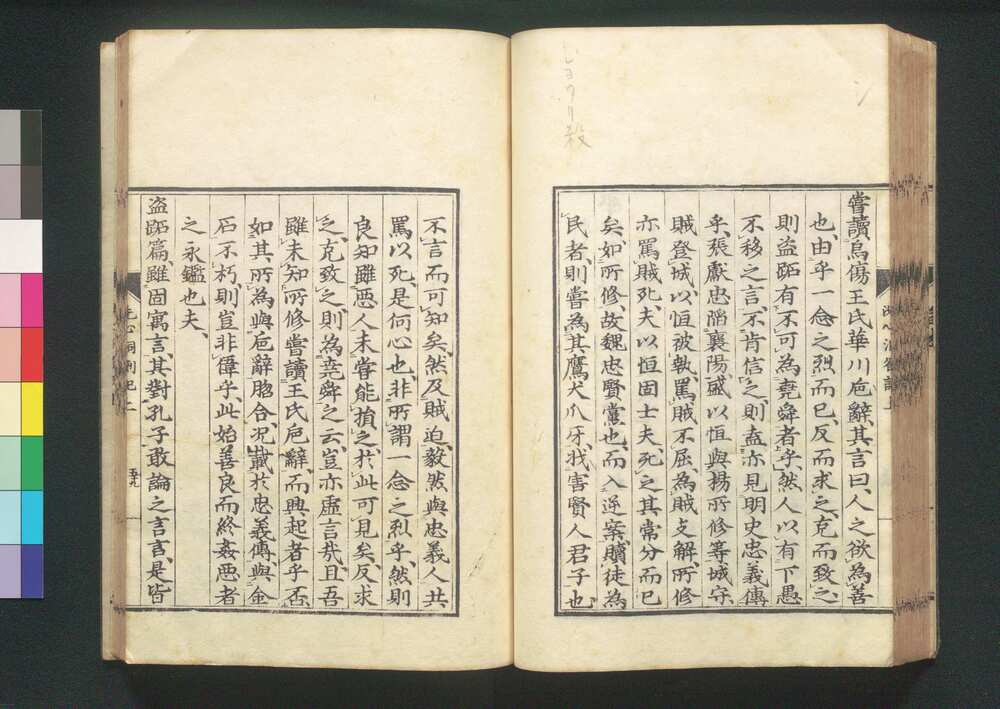 嘗讀烏傷王氏華川巵辭、其言曰、人之欲為善
也、由乎一念之烈而已、反而求之、克而致之、
則盗跖有不可為堯舜者乎、然人以有下愚
不移之言、不肯信之、則盍亦見明史忠義傳
乎、張獻忠陷襄陽、盛以恒與楊所修等城守、
賊登城、以恒被執、罵賊不屈、為賊支解、所修
亦罵賊死、夫以恒固士夫、死之其常分而已
矣、如所修、故魏忠賢黨也、而入逆案贖徒為
民者、則嘗為其鷹犬爪牙、戕害賢人君子也、
不言而可知矣、然及賊迫、毅然與忠義人共
罵以死、是何心也、非所謂一念之烈乎、然則
良知雖惡人未嘗能損之、於此可見矣、反求
之、克致之、則為堯舜之云、豈亦虛言哉、且吾
雖未知所修嘗讀王氏巵辭、而興起者乎否、
如其所為與巵辭脗合、况載於忠義傳、與金
石不朽、則豈非偉乎、此始善良而終姦惡者
之永鑑也夫、
盗跖篇、雖固寓言、其對孔子敢論之言言、是皆